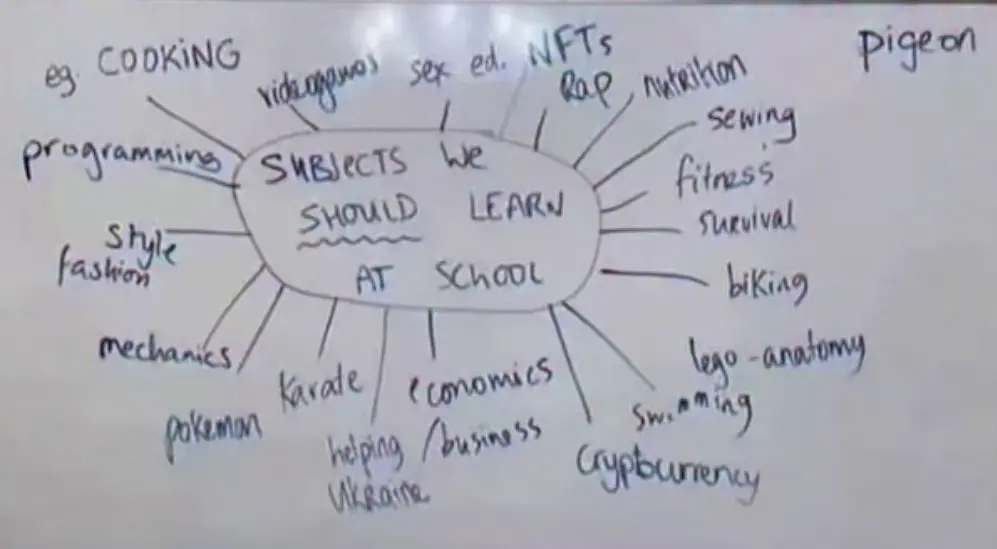 eg. COOKING
videogames
sex ed.
NFTs
Rap
nutrition
pigeon
sewing
programming
SUBJECTS We
fitness
SHOULD LEARN
survival
style
fashion
AT SCHOOL
biking
mechanics
lego-anatomy
Karate
economics
/business
swimming
pokemon
helping
Ukraine
Cryptocurrency